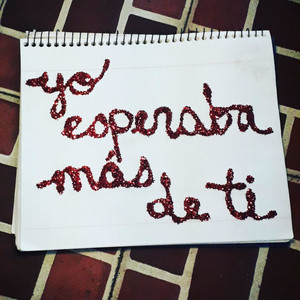 yo
esperaba
más
de ti